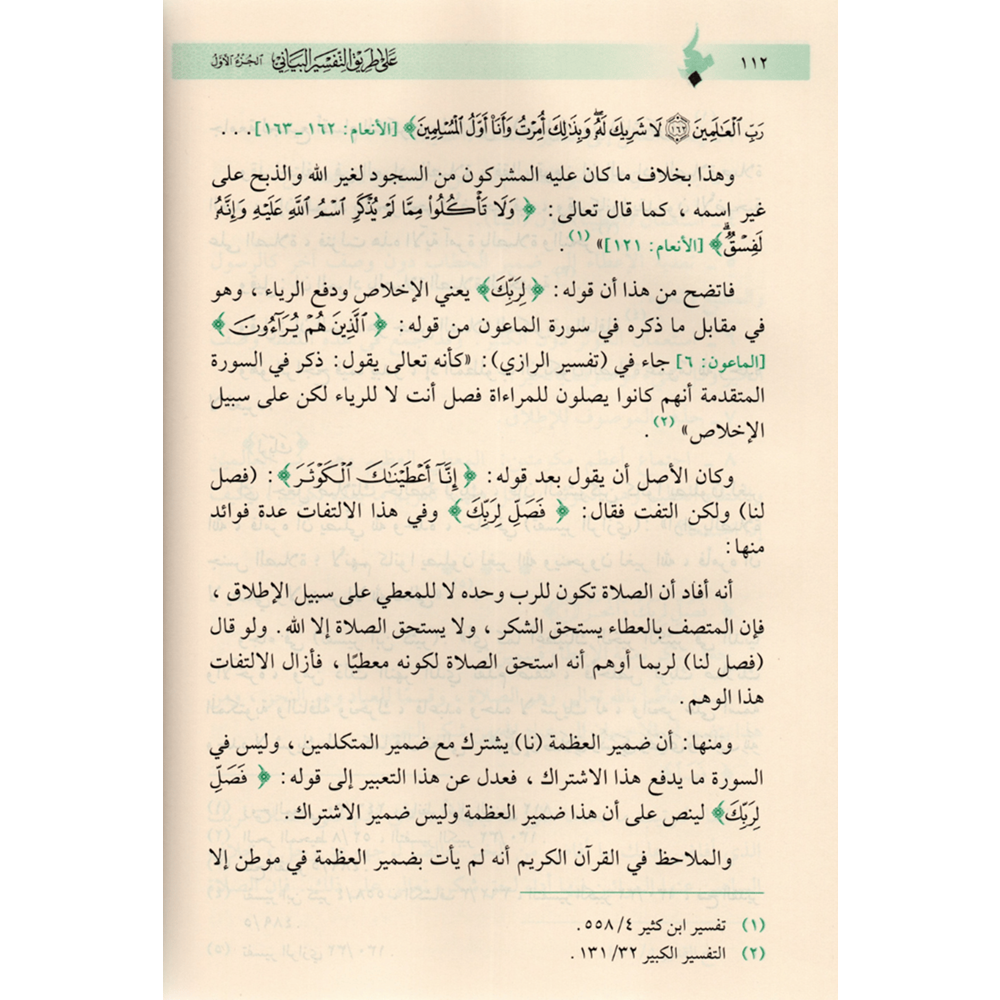 ١١٢
على طريق التفسير البياني الجزء الأول
رَبِّ الْعَالَمِينَ ﴿١٦٢﴾ لَا شَرِيكَ لَهُ وَبِذَلِكَ أُمِرْتُ وَأَنَا أَوَّلُ الْمُسْلِمِينَ﴾ [الأنعام: ١٦٢ ـ ١٦٣] . . .
وهذا بخلاف ما كان عليه المشركون من السجود لغير الله والذبح على
غير اسمه ، كما قال تعالى: ﴿ وَلَا تَأْكُلُوا مِمَّا لَمْ يُذْكَرِ اسْمُ اللَّهِ عَلَيْهِ وَإِنَّهُ
لَفِسْقٌ﴾ [الأنعام: ١٢١]» (١) .
فاتضح من هذا أن قوله: ﴿ لِرَبِّكَ﴾ يعني الإخلاص ودفع الرياء ، وهو
في مقابل ما ذكره في سورة الماعون من قوله: ﴿ الَّذِينَ هُمْ يُرَاءُونَ ﴾
[الماعون: ٦] جاء في (تفسير الرازي): «كأنه تعالى يقول: ذكر في السورة
المتقدمة أنهم كانوا يصلون للمراءاة فصل أنت لا للرياء لكن على سبيل
الإخلاص» (٢) .
وكان الأصل أن يقول بعد قوله: ﴿ إِنَّا أَعْطَيْنَاكَ الْكَوْثَرَ ﴾: (فصل
لنا) ولكن التفت فقال: ﴿ فَصَلِّ لِرَبِّكَ ﴾ وفي هذا الالتفات عدة فوائد
منها:
أنه أفاد أن الصلاة تكون للرب وحده لا للمعطي على سبيل الإطلاق ،
فإن المتصف بالعطاء يستحق الشكر ، ولا يستحق الصلاة إلا الله . ولو قال
(فصل لنا) لربما أوهم أنه استحق الصلاة لكونه معطيًا ، فأزال الالتفات
هذا الوهم.
ومنها: أن ضمير العظمة (نا) يشترك مع ضمير المتكلمين ، وليس في
السورة ما يدفع هذا الاشتراك ، فعدل عن هذا التعبير إلى قوله: ﴿ فَصَلِّ
لِرَبِّكَ﴾ لينص على أن هذا ضمير العظمة وليس ضمير الاشتراك.
والملاحظ في القرآن الكريم أنه لم يأت بضمير العظمة في موطن إلا
(١) تفسير ابن كثير ٤/ ٥٥٨ .
(٢) التفسير الكبير ٣٢/ ١٣١ .